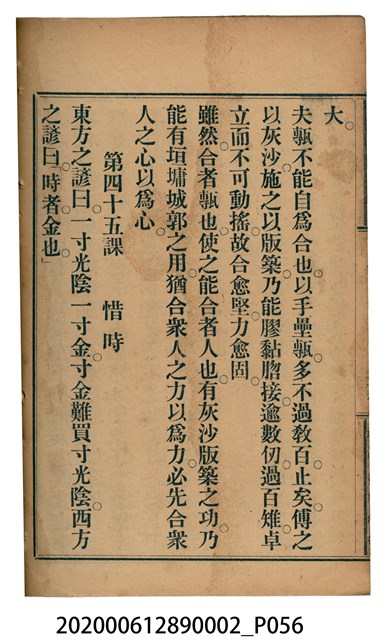 大。
夫甎不能自爲合也。以手壘甎。多不過敎百止矣。傅之
以灰沙。施之以版築。乃能膠黏脗接。逾數仞。過百雉。卓
立而不可動搖。故合愈堅。力愈固
雖然。合者甎也。使之能合者人也。有灰沙版築之功。乃
能有垣墉城郭之用。猶合衆人之力以爲力。必先合衆
人之心以爲心。
第四十五課　惜時
東方之諺曰。一寸光陰一寸金。寸金難買寸光陰。西方
之諺曰。「時者金也」
202000612890002_P056